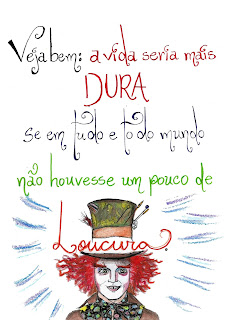 Veja bem: a vida seria mais
DURA
se em tudo e todo mundo
não houvesse um pouco de
Loucura.